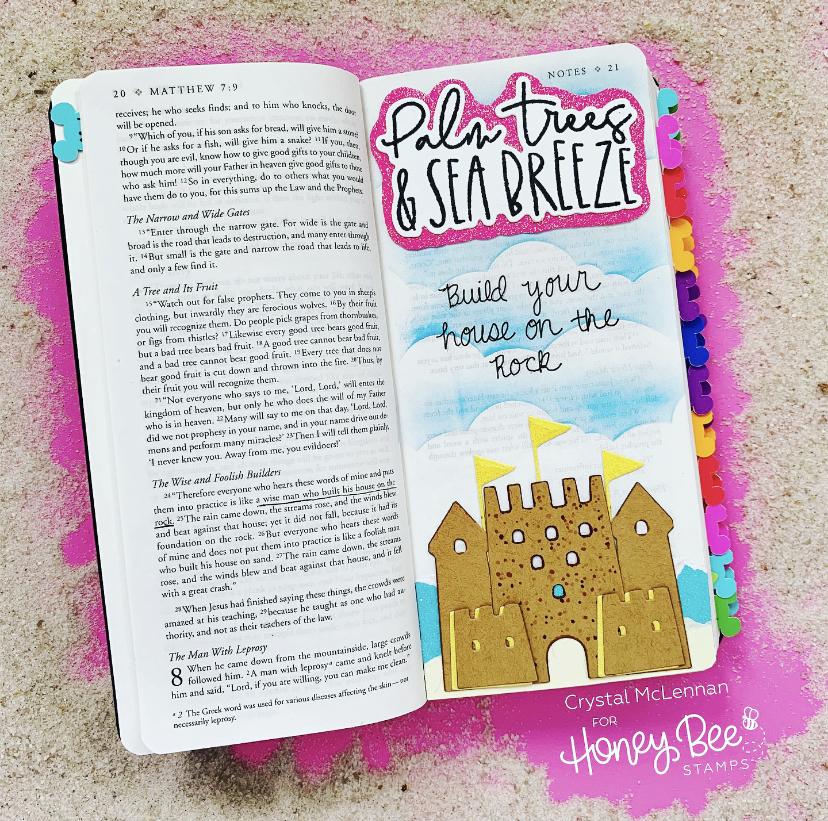 20 ❖ MATTHEW 7:9
receives; he who seeks finds; and to him who knocks, the door
will be opened.
9"Which of you, if his son asks for bread, will give him a stone?
10Or if he asks for a fish, will give him a snake? 11If you, then,
though you are evil, know how to give good gifts to your children,
how much more will your Father in heaven give good gifts to those
who ask him! 12So in everything, do to others what you would
have them do to you, for this sums up the Law and the Prophets.
The Narrow and Wide Gates
13"Enter through the narrow gate. For wide is the gate and
broad is the road that leads to destruction, and many enter through
it. 14But small is the gate and narrow the road that leads to life,
and only a few find it.
A Tree and Its Fruit
15"Watch out for false prophets. They come to you in sheep's
clothing, but inwardly they are ferocious wolves. 16By their fruit
you will recognize them. Do people pick grapes from thornbushes,
or figs from thistles? 17Likewise every good tree bears good fruit,
but a bad tree bears bad fruit. 18A good tree cannot bear bad fruit,
and a bad tree cannot bear good fruit. 19Every tree that does not
bear good fruit is cut down and thrown into the fire. 20Thus, by
their fruit you will recognize them.
21"Not everyone who says to me, 'Lord, Lord,' will enter the
kingdom of heaven, but only he who does the will of my Father
who is in heaven. 22Many will say to me on that day, 'Lord, Lord,
did we not prophesy in your name, and in your name drive out de-
mons and perform many miracles?' 23Then I will tell them plainly,
'I never knew you. Away from me, you evildoers!'
The Wise and Foolish Builders
24"Therefore everyone who hears these words of mine and puts
them into practice is like a wise man who built his house on the
rock. 25The rain came down, the streams rose, and the winds blew
and beat against that house; yet it did not fall, because it had its
foundation on the rock. 26But everyone who hears these words
of mine and does not put them into practice is like a foolish man
who built his house on sand. 27The rain came down, the streams
rose, and the winds blew and beat against that house, and it fell
with a great crash."
28When Jesus had finished saying these things, the crowds were
amazed at his teaching, 29because he taught as one who had au-
thority, and not as their teachers of the law.
The Man With Leprosy
8 When he came down from the mountainside, large crowds
followed him. 2A man with leprosya came and knelt before
him and said, "Lord, if you are willing, you can make me clean."
a 2 The Greek word was used for various diseases affecting the skin—not
necessarily leprosy.
NOTES ❖ 21
Palm trees
& SEA BREEZE
Build your
house on the
Rock
Crystal McLennan
FOR
Honey Bee
STAMPS